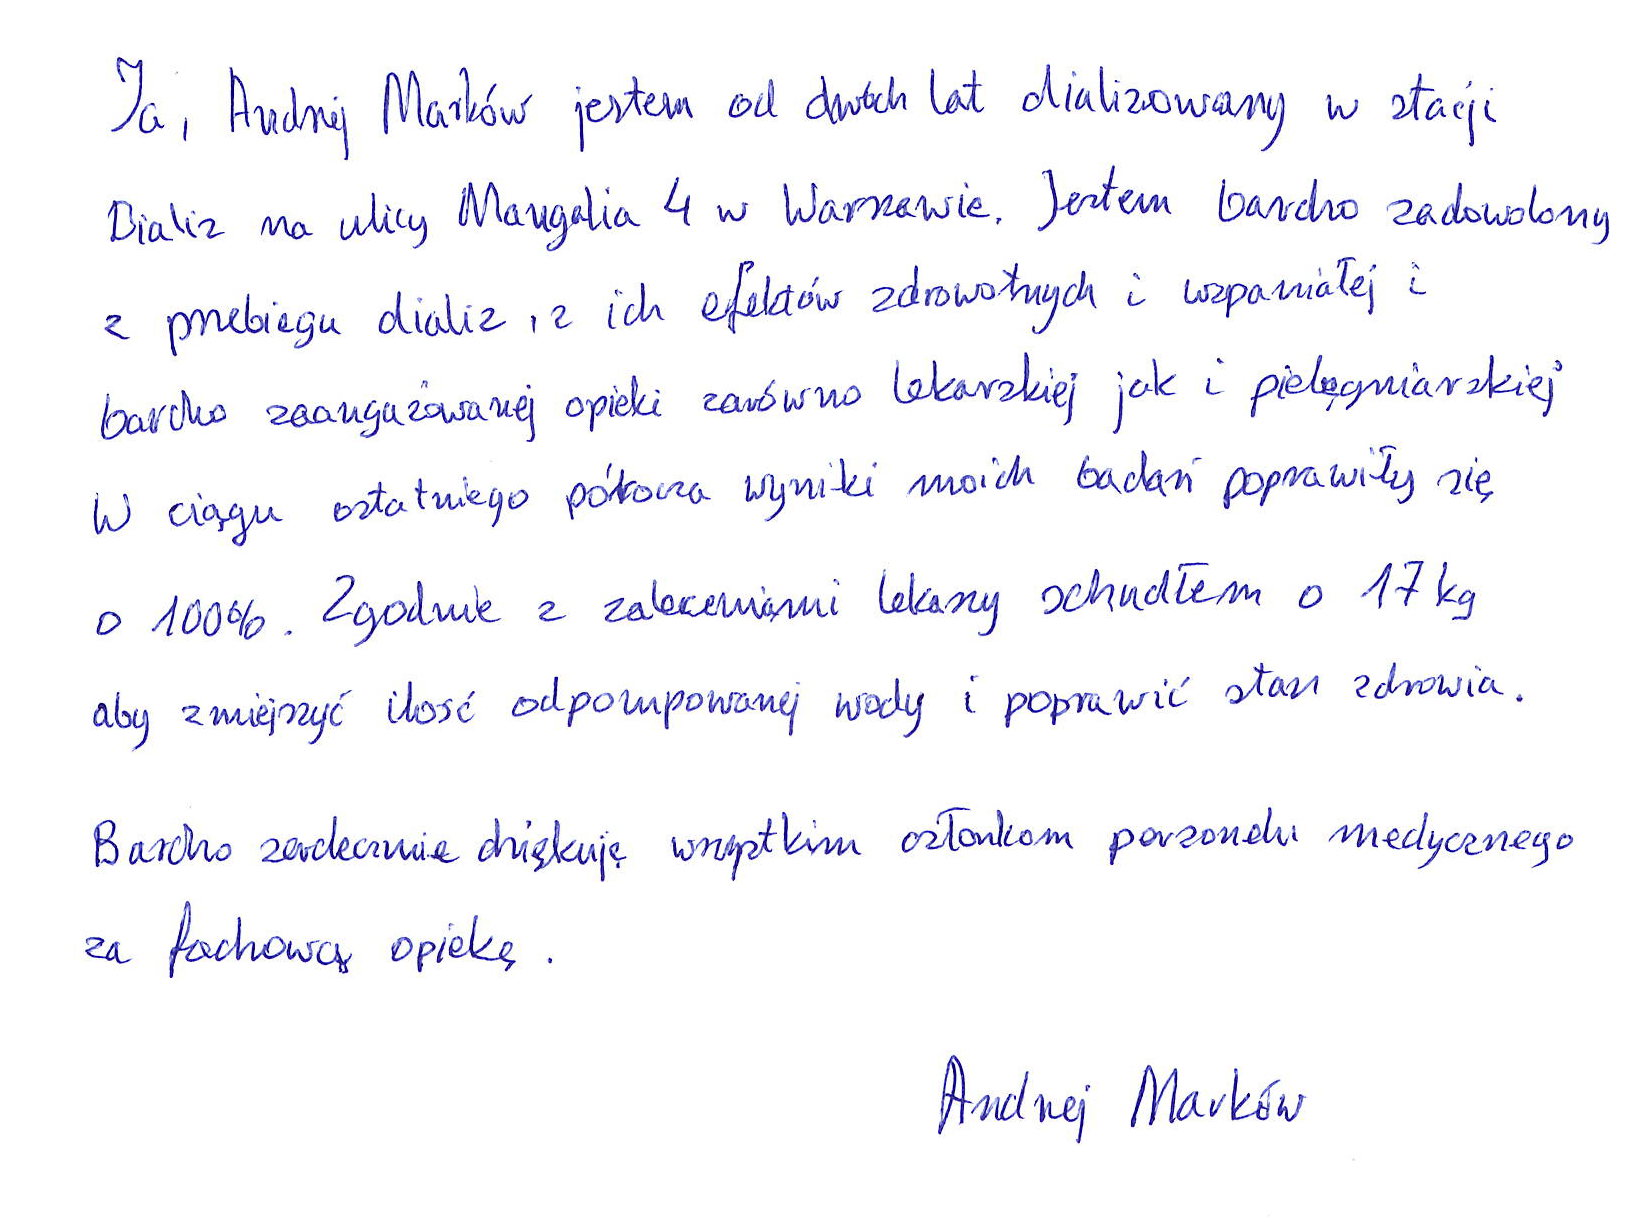 Ja, Andrzej Marków jestem od dwóch lat dializowany w stacji
Dializ na ulicy Mangalia 4 w Warszawie. Jestem bardzo zadowolony
z przebiegu dializ, z ich efektów zdrowotnych i wspaniałej i
bardzo zaangażowanej opieki zarówno lekarskiej jak i pielęgniarskiej
W ciągu ostatniego półrocza wyniki moich badań poprawiły się
o 100%. Zgodnie z zaleceniami lekarzy schudłem o 17 kg
aby zmiejszyć ilość odpompowanej wody i poprawić stan zdrowia.
Bardzo serdecznie dziękuję wszystkim członkom personelu medycznego
za fachową opiekę.
Andrzej Marków